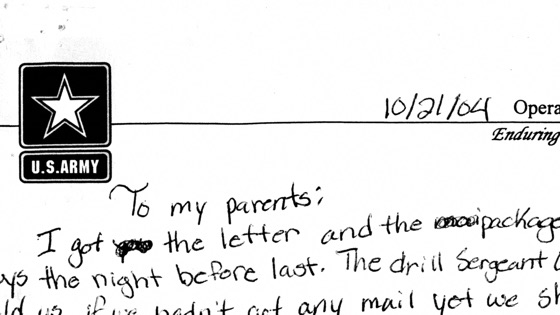 10/21/04 Opera
Enduring
U.S.ARMY
To my parents:
I got the letter and the package
ys the night before last. The drill Sergeant
ld us if we hadn't got any mail yet we sh